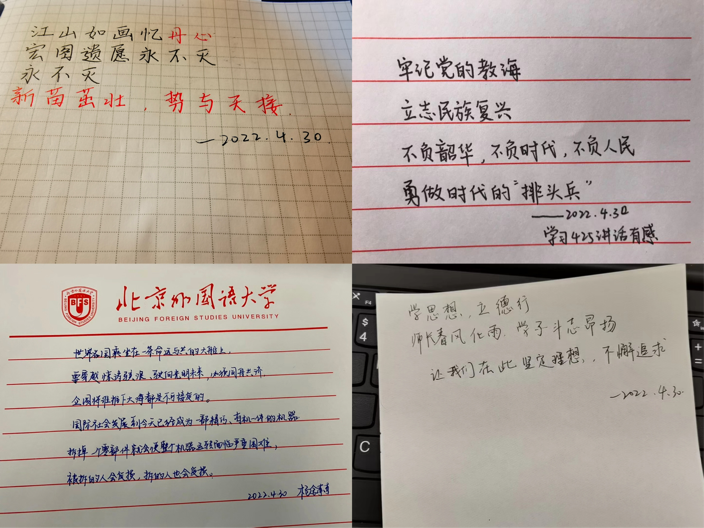 江山如画忆丹心
宏图遗愿永不灭
永不灭
新苗茁壮，势与天接.
—2022.4.30.
牢记党的教诲
立志民族复兴
不负韶华，不负时代，不负人民
勇做时代的“排头兵”
——2022.4.30
学习425讲话有感
北京外国语大学
BEIJING FOREIGN STUDIES UNIVERSITY
BFS
世界各国乘坐在一条命运与共的大船上，
要穿越惊涛骇浪、驶向光明未来，必须同舟共济
企图将谁扔下大海都是不可接受的。
国际社会发展到今天已经成为一部精巧、有机一体的机器
拆掉一个零部件就会使整个机器运转面临严重困难，
被拆的人会受损，拆的人也会受损。
2022.4.30
学思想，立德行
师长春风化雨，学子斗志昂扬
让我们在此坚定理想，不懈追求
—2022.4.30.
$
4
C